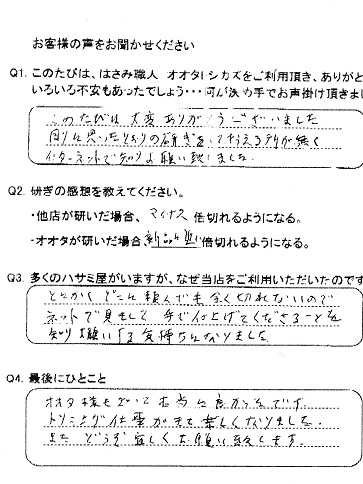 お客様の声をお聞かせください
Q1. このたびは、はさみ職人 オオタ・シカズをご利用頂き、ありがと
いろいろ不安もあったでしょう・・・何が決め手でお声掛け頂きまし
このたびは大変ありがとうございました
周りに思ったとおりの研ぎをしてもらえる所が無く
インターネットで知りお願い致しました。
Q2. 研ぎの感想を教えてください。
・他店が研いだ場合、マイナス倍切れるようになる。
・オオタが研いだ場合新品に近い倍切れるようになる。
Q3. 多くのハサミ屋がいますが、なぜ当店をご利用いただいたのです
とにかくどこに頼んでも全く切れないので
ネットで見まして 手で仕上げてくださることを
知りお願いする気持ちになりました
Q4. 最後にひとこと
オオタ様 本当に良かったです。
トリミング仕事がまた楽しくなりました。
また どうぞ宜しくお願い致します。